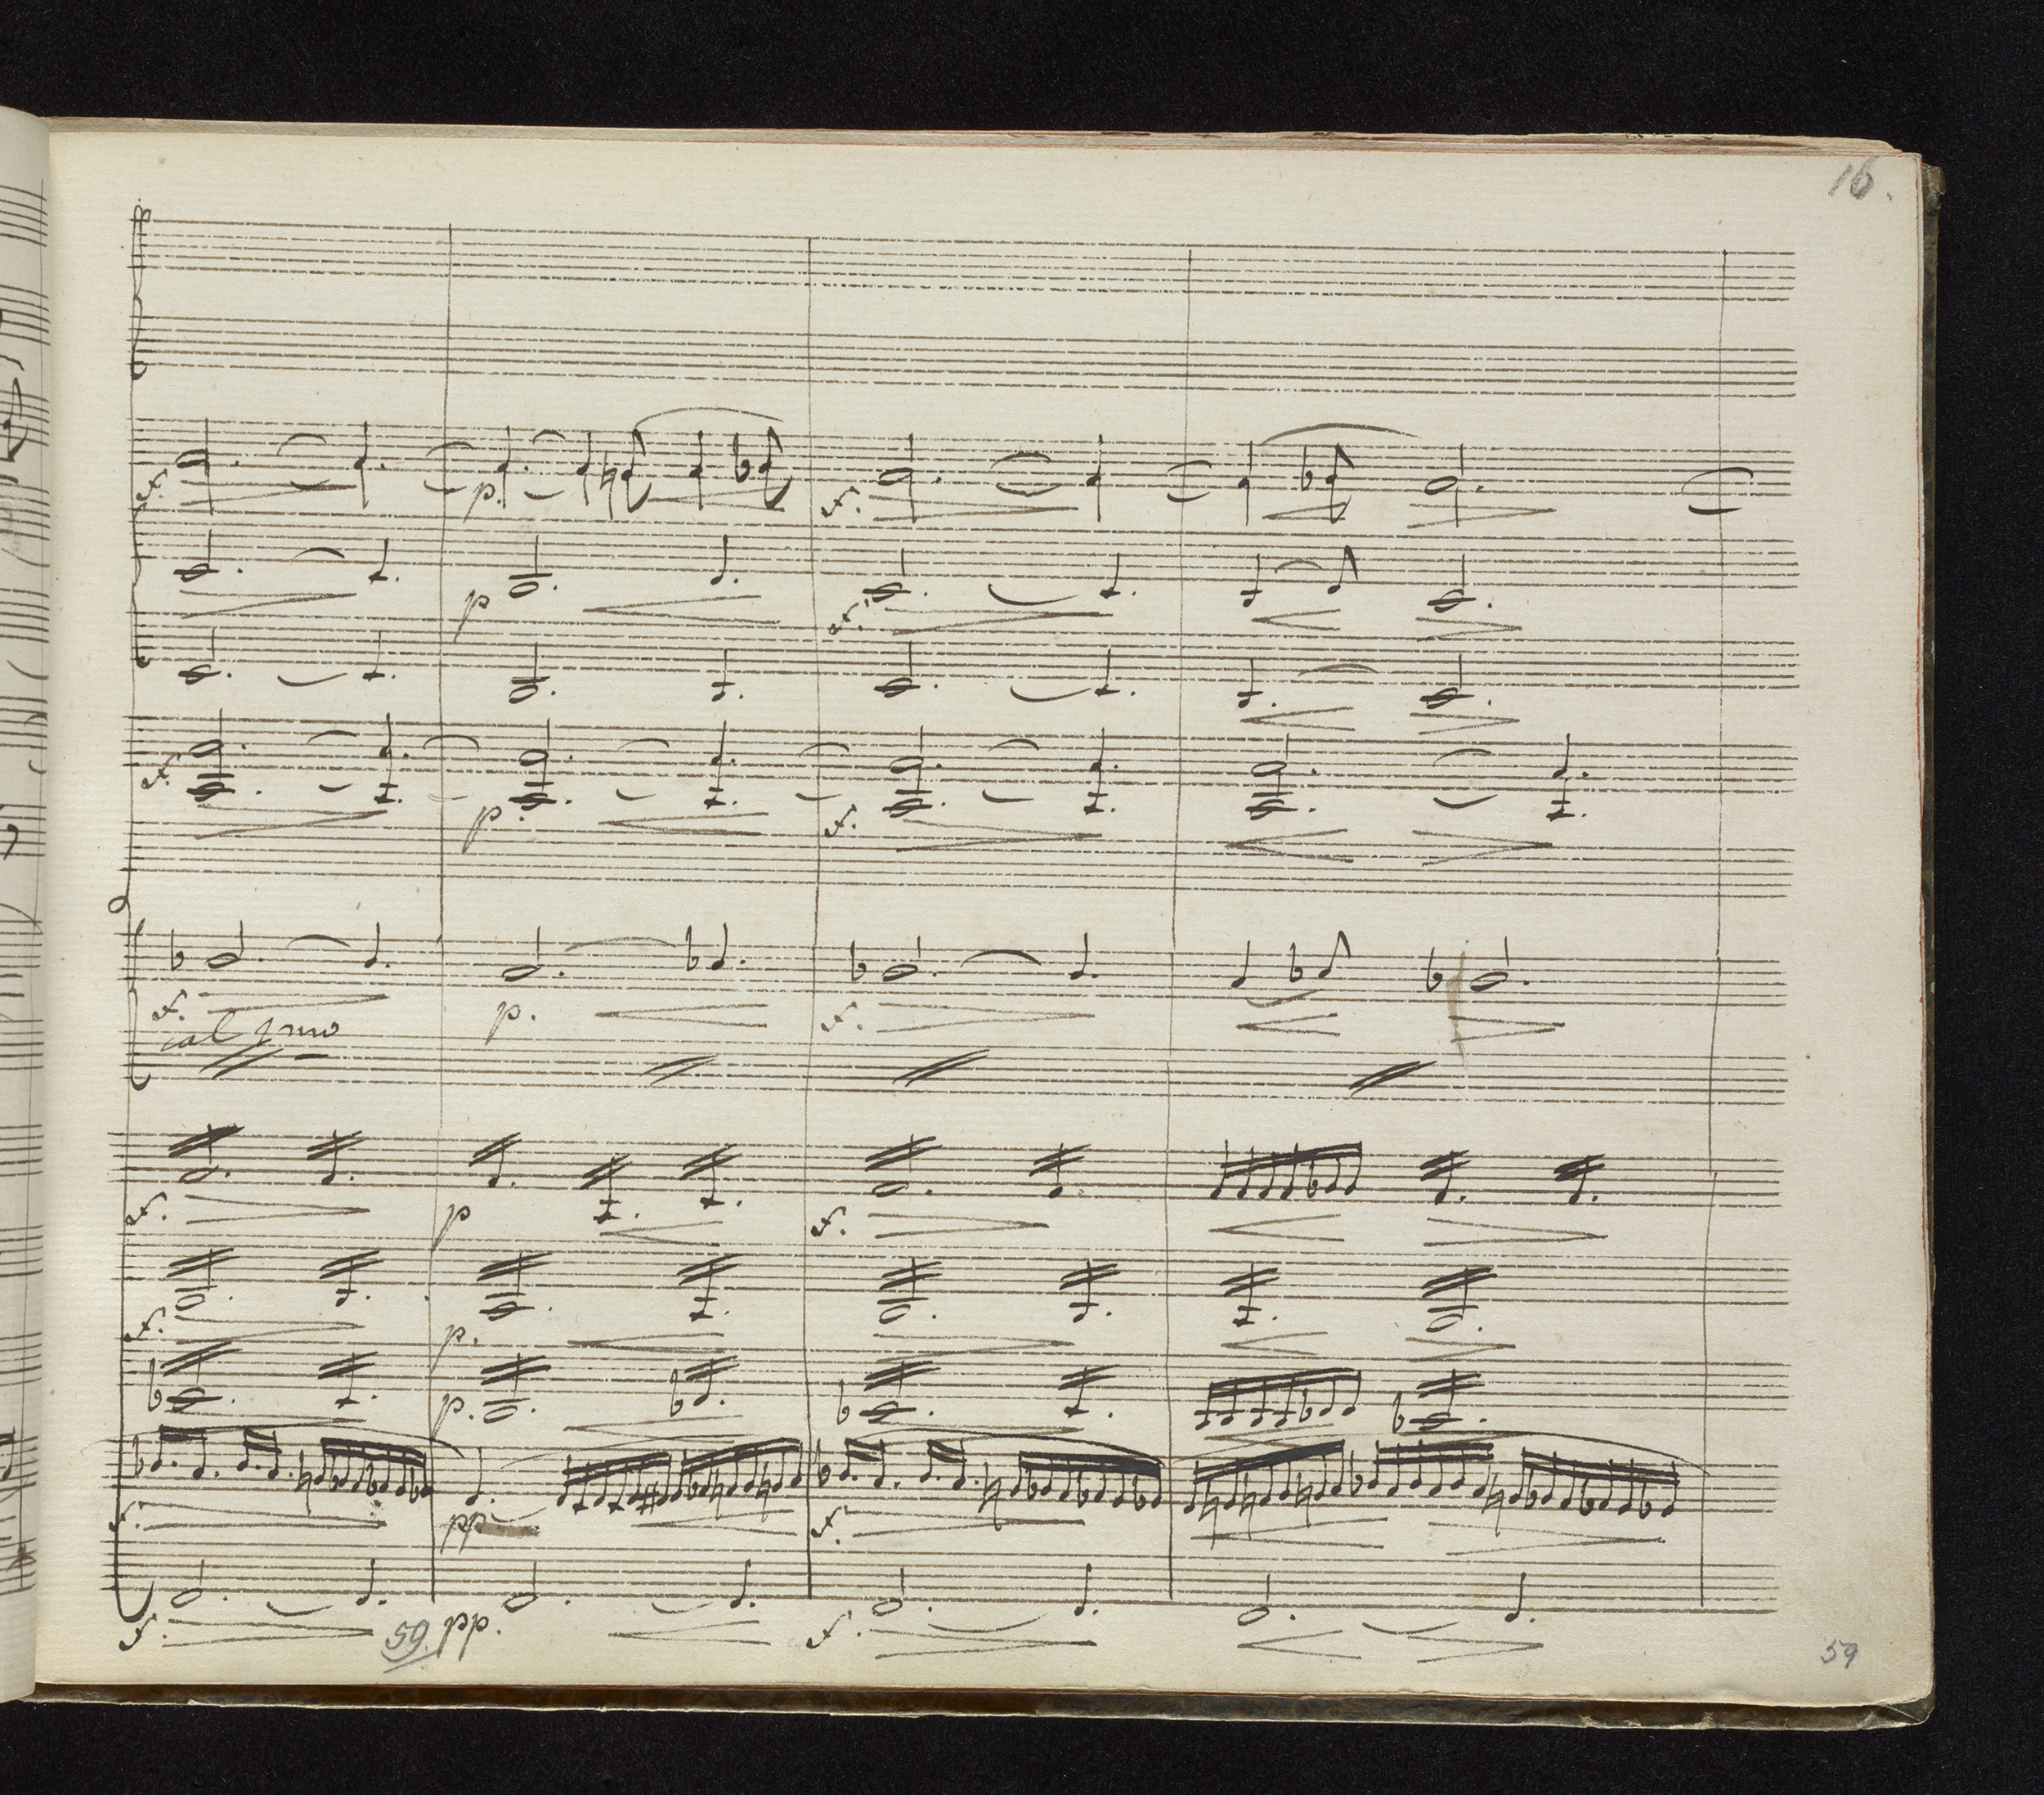 16.
f. p. f.
p f.
f. p. f.
f. p. f.
col 1mo
f. p f.
f. p.
p.
f. pp f.
f. 59. pp. f.
59